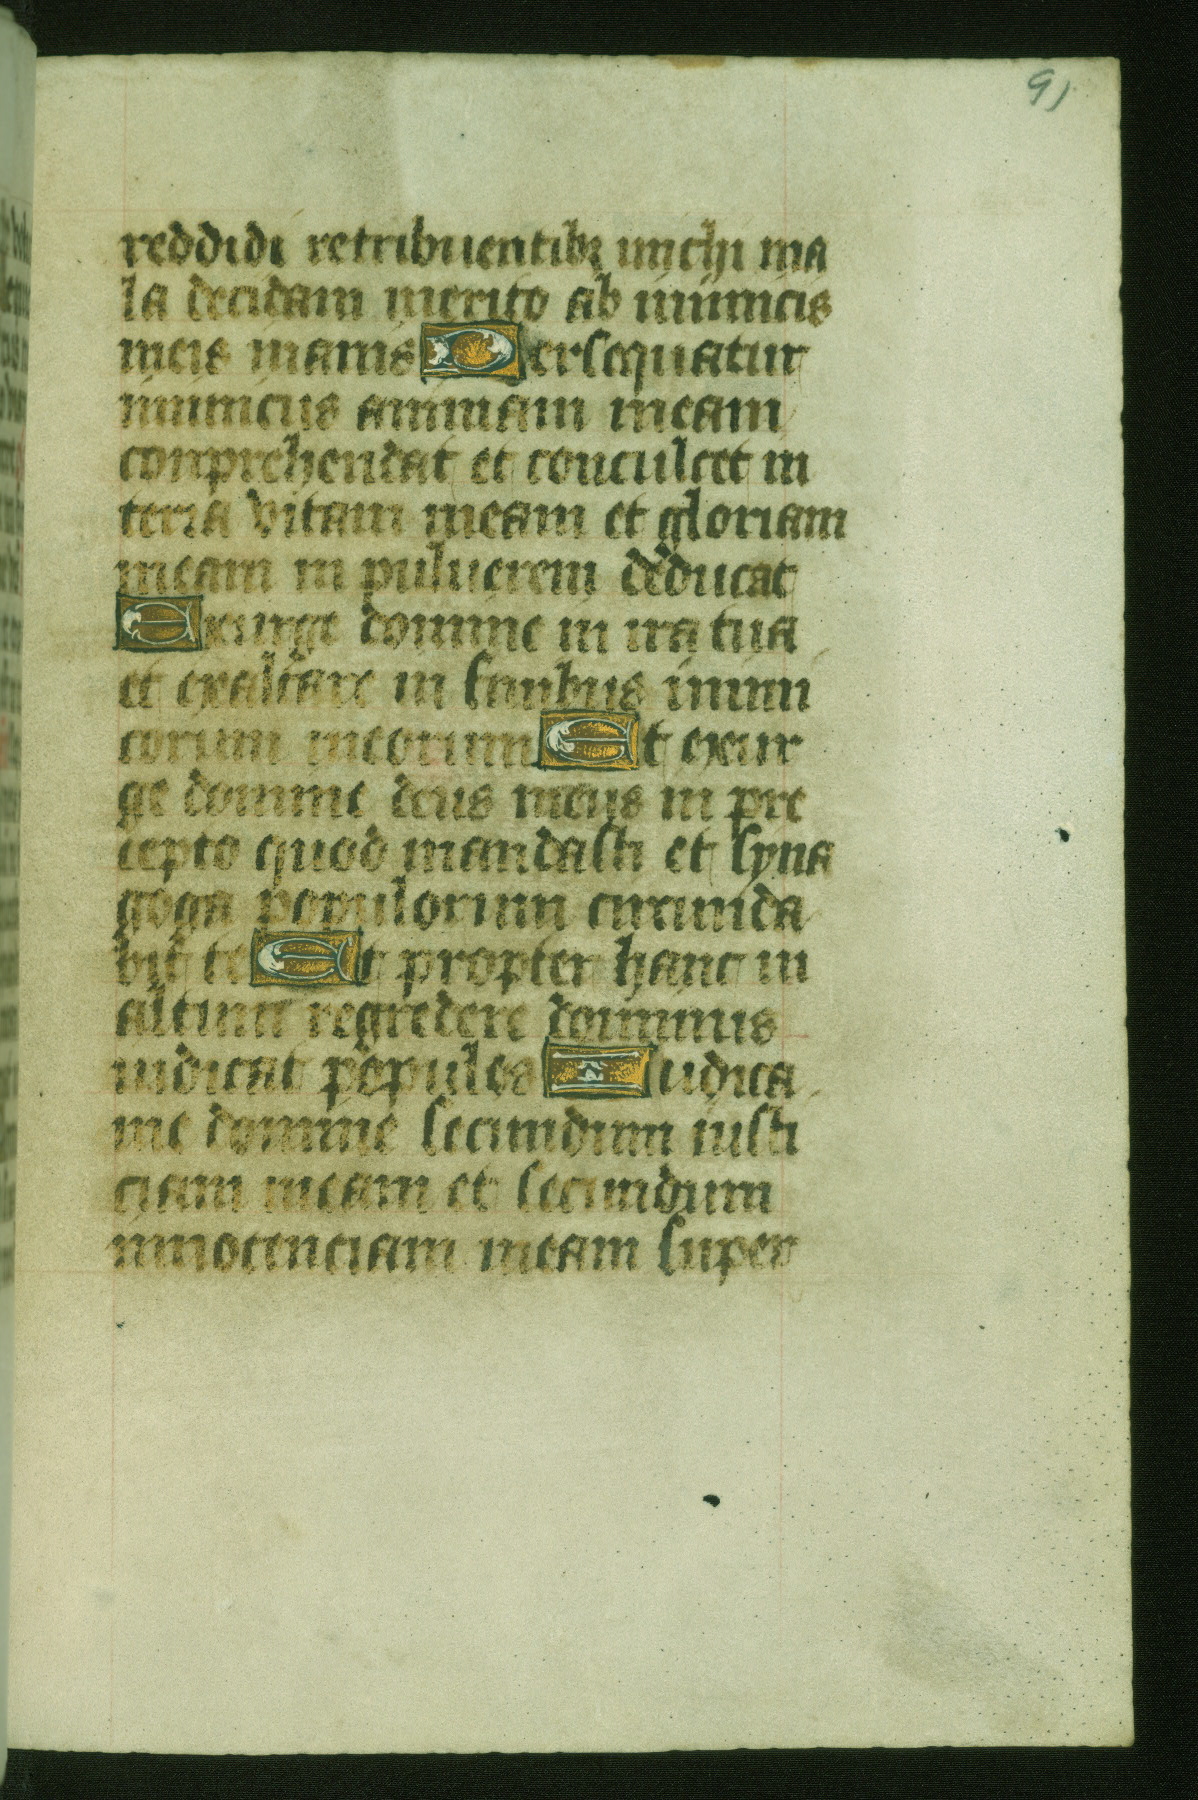 91
reddidi retribuentibꝫ michi ma
la decidam merito ab inimicis
meis inanis Persequatur
inimicus animam meam
conprehendat et conculcet in
terra vitam meam et gloriam
meam in puluerem deducat
Exurge domine in ira tua
et exaltare in finibus inimi
corum meorum Et exur
ge domine deus meus in pre
cepto quod mandasti et syna
goga populorum circumda
bit te Et propter hanc in
altum regredere dominus
iudicat populos Iudica
me domine secundum iusti
ciam meam et secundum
innocenciam meam super